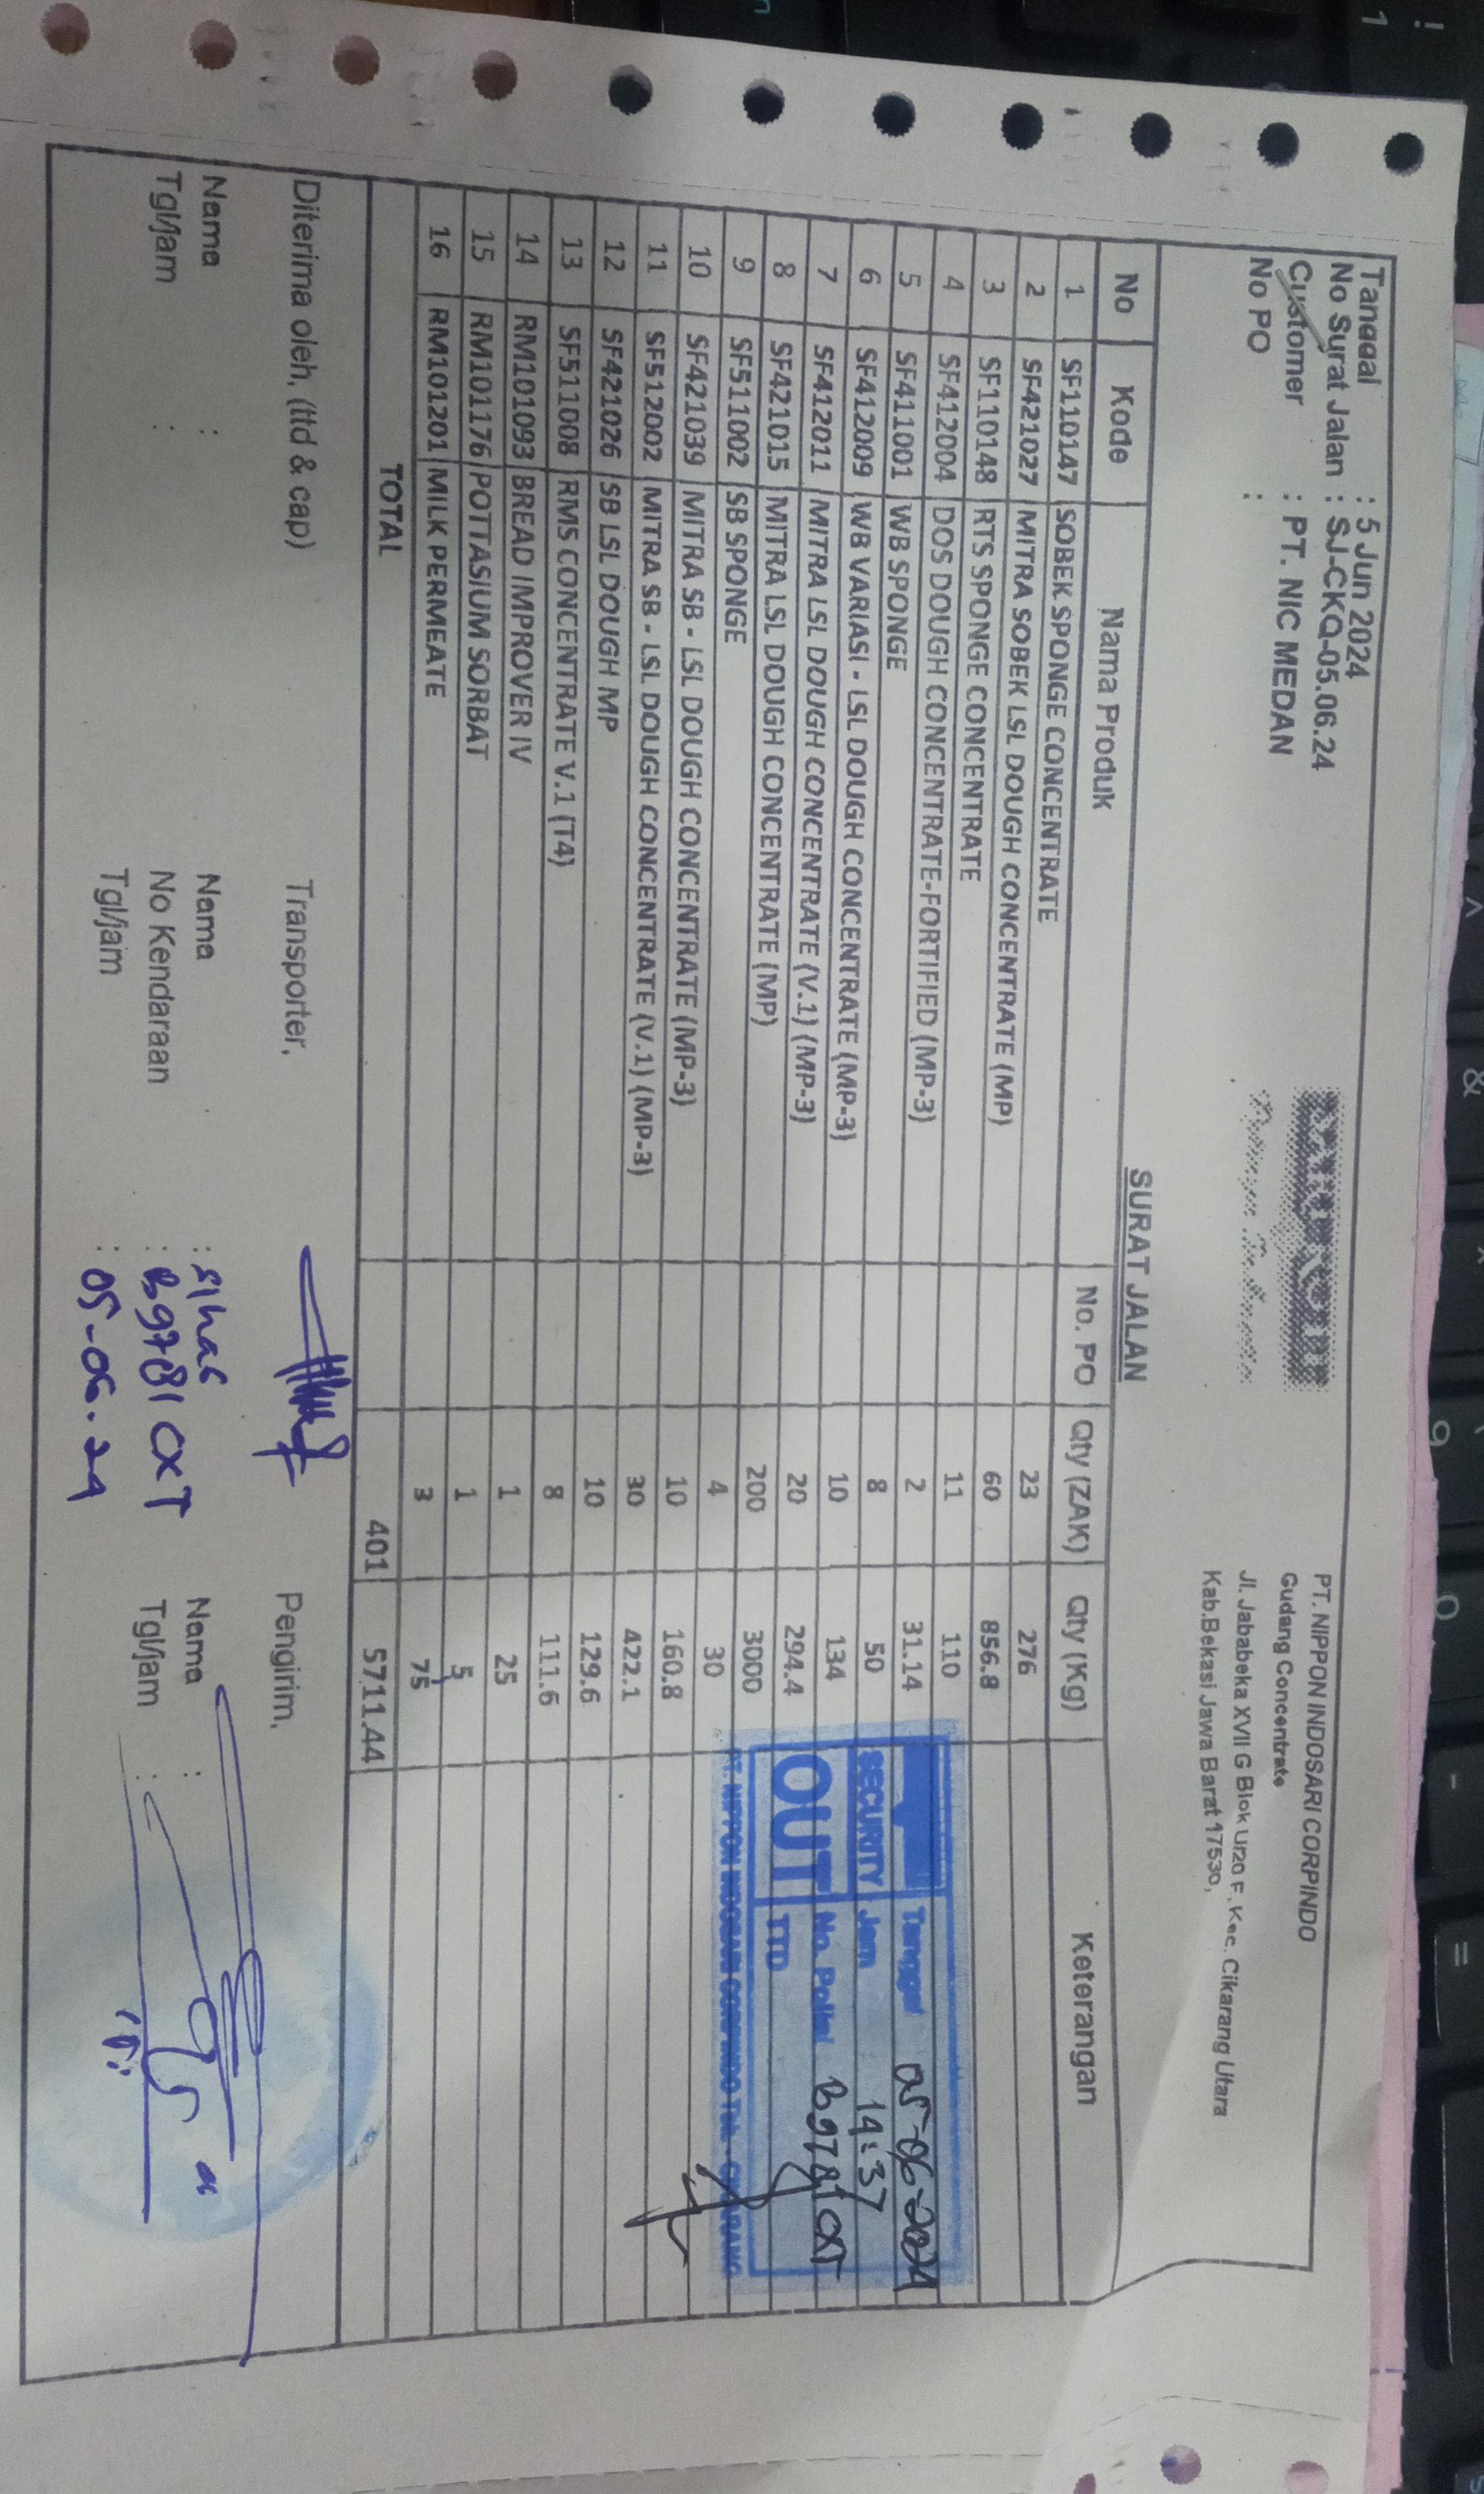 Tanggal : 5 Jun 2024
No Surat Jalan : SJ-CKQ-05.06.24
Customer : PT. NIC MEDAN
No PO :
SARI ROTI
PT. NIPPON INDOSARI CORPINDO
Gudang Concentrate
Jl. Jababeka XVII G Blok U/20 F, Kec. Cikarang Utara
Kab.Bekasi Jawa Barat 17530,
SURAT JALAN
No Kode Nama Produk No. PO Qty (ZAK) Qty (Kg) Keterangan
1 SF110147 SOBEK SPONGE CONCENTRATE 23 276
2 SF421027 MITRA SOBEK LSL DOUGH CONCENTRATE (MP) 60 856.8
3 SF110148 RTS SPONGE CONCENTRATE 11 110
4 SF412004 DOS DOUGH CONCENTRATE-FORTIFIED (MP-3) 2 31.14
5 SF411001 WB SPONGE 8 50
6 SF412009 WB VARIASI - LSL DOUGH CONCENTRATE (MP-3) 10 134
7 SF412011 MITRA LSL DOUGH CONCENTRATE (V.1) (MP-3) 20 294.4
8 SF421015 MITRA LSL DOUGH CONCENTRATE (MP) 200 3000
9 SF511002 SB SPONGE 4 30
10 SF421039 MITRA SB - LSL DOUGH CONCENTRATE (MP-3) 10 160.8
11 SF512002 MITRA SB - LSL DOUGH CONCENTRATE (V.1) (MP-3) 30 422.1
12 SF421026 SB LSL DOUGH MP 10 129.6
13 SF511008 RMS CONCENTRATE V.1 (T4) 8 111.6
14 RM101093 BREAD IMPROVER IV 1 25
15 RM101176 POTTASIUM SORBAT 1 5
16 RM101201 MILK PERMEATE 3 75
TOTAL 401 5711.44
SECURITY
OUT
Tanggal 05-06-2024
Jam 14:37
No. Polisi B9781 CXT
TTD
PT. NIPPON INDOSARI CORPINDO Tbk. - CIKARANG
Diterima oleh, (ttd & cap) Transporter, Pengirim,
Nama : Nama : Nama :
Tgl/jam : No Kendaraan : B9781 CXT Tgl/jam :
Tgl/jam : 05-06.24
! 1 ^ & 9 0 - =